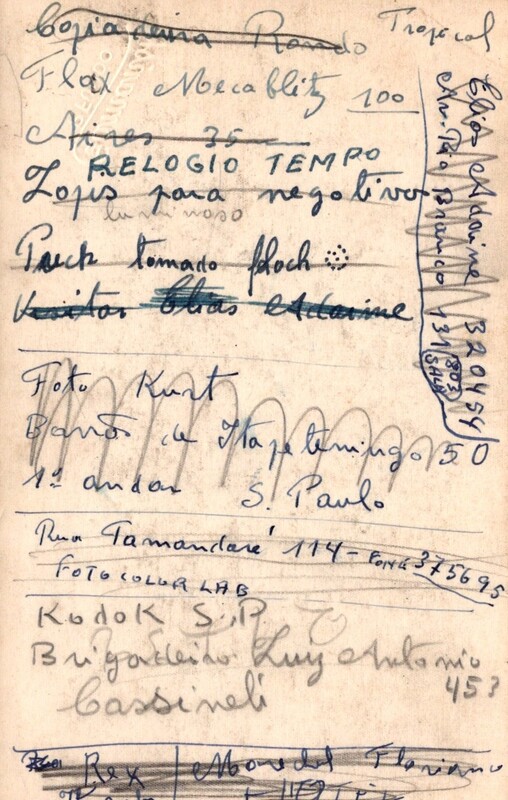 Copiadeira Rondo Tropical
Flax Mecablitz 100
Aires 35
RELOGIO TEMPO
Lapis para negativo
luminoso
tomado floch
Visitar Elias Adaime
Elias Adaime 320454
Av. Rio Branco 131 803
SALA
Foto Kurt
Barão de Itapetininga 50
1º andar S. Paulo
Rua Tamandaré 114 - FONE 375695
FOTO COLOR LAB
Kodok S.P
Brigadeiro Luiz Antonio
453
Cassineli
Rex Marechal Floriano